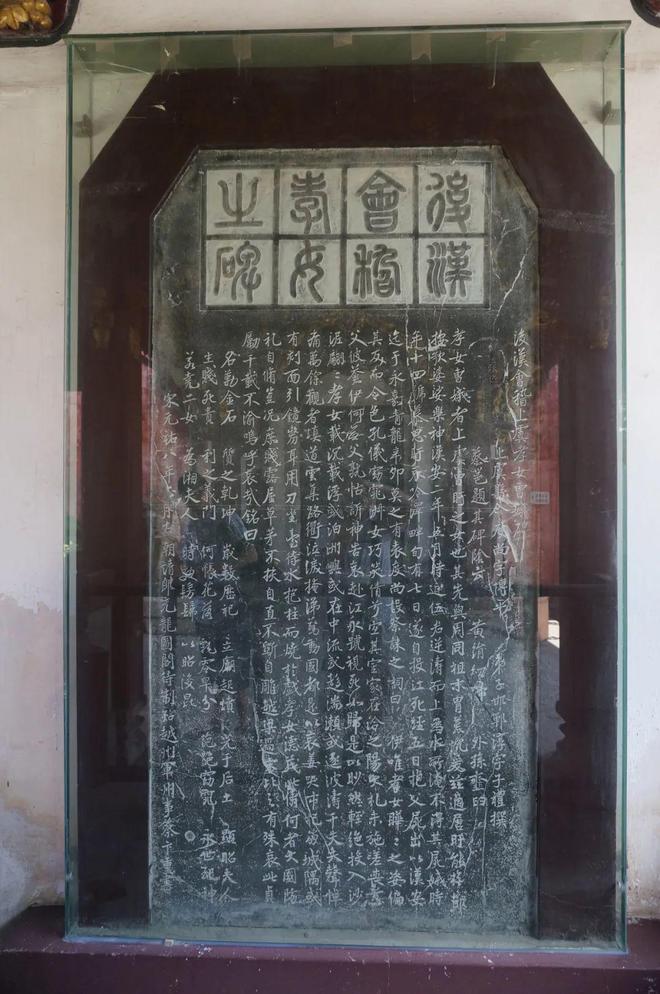 後漢會稽孝女之碑
後漢會稽上虞孝女曹娥碑
上虞縣令度尚字博平 弟子邯鄲淳字子禮撰
蔡邕題其碑陰云 黃絹幼婦 外孫齏臼
孝女曹娥者上虞曹盱之女也其先與周同祖末冑荒沉爰茲適居盱能撫節
按歌婆娑樂神漢安二年五月時迎伍君逆濤而上為水所淹不得其屍娥時
年十四號慕思盱哀吟澤畔旬有七日遂自投江死經五日抱父屍出以漢安
迄于永嘉青龍辛卯莫之有表度尚設祭誄之詞曰 伊唯孝女曄〻之姿偏
其反而令色孔儀窈窕淑女巧笑倩兮宜其室家在洽之陽大札未施嗟喪慈
父彼蒼伊何無父孰怙訴神告哀赴江永號視死如歸是以眇然輕絕投入沙
泥翩〻孝女載沉載浮或泊洲嶼或在中流或趨湍瀨或逐波濤千夫失聲悼
痛萬餘觀者填道雲集路衢泣淚掩涕驚動國都是以哀姜哭市杞崩城隅或
有刻面引鏡剺耳用刀坐臺待水抱柱而燒於戲孝女德茂此儔何者大國防
礼自脩豈況庶賤露屋草茅不扶自直不斲自雕越梁過宋比之有殊哀此貞
厲千載不渝嗚呼哀哉銘曰
名勒金石 質之乾坤 歲數歷祀 立廟起墳 光于后土 顯昭夫人
生賤死貴 利之義門 何悵花落 飄零早分 葩艷窈窕 永世配神
若堯二女 為湘夫人 時效髣髴 以昭後昆
宋元祐八年 月左朝請郎充龍圖閣待制知越州軍州事蔡卞重書